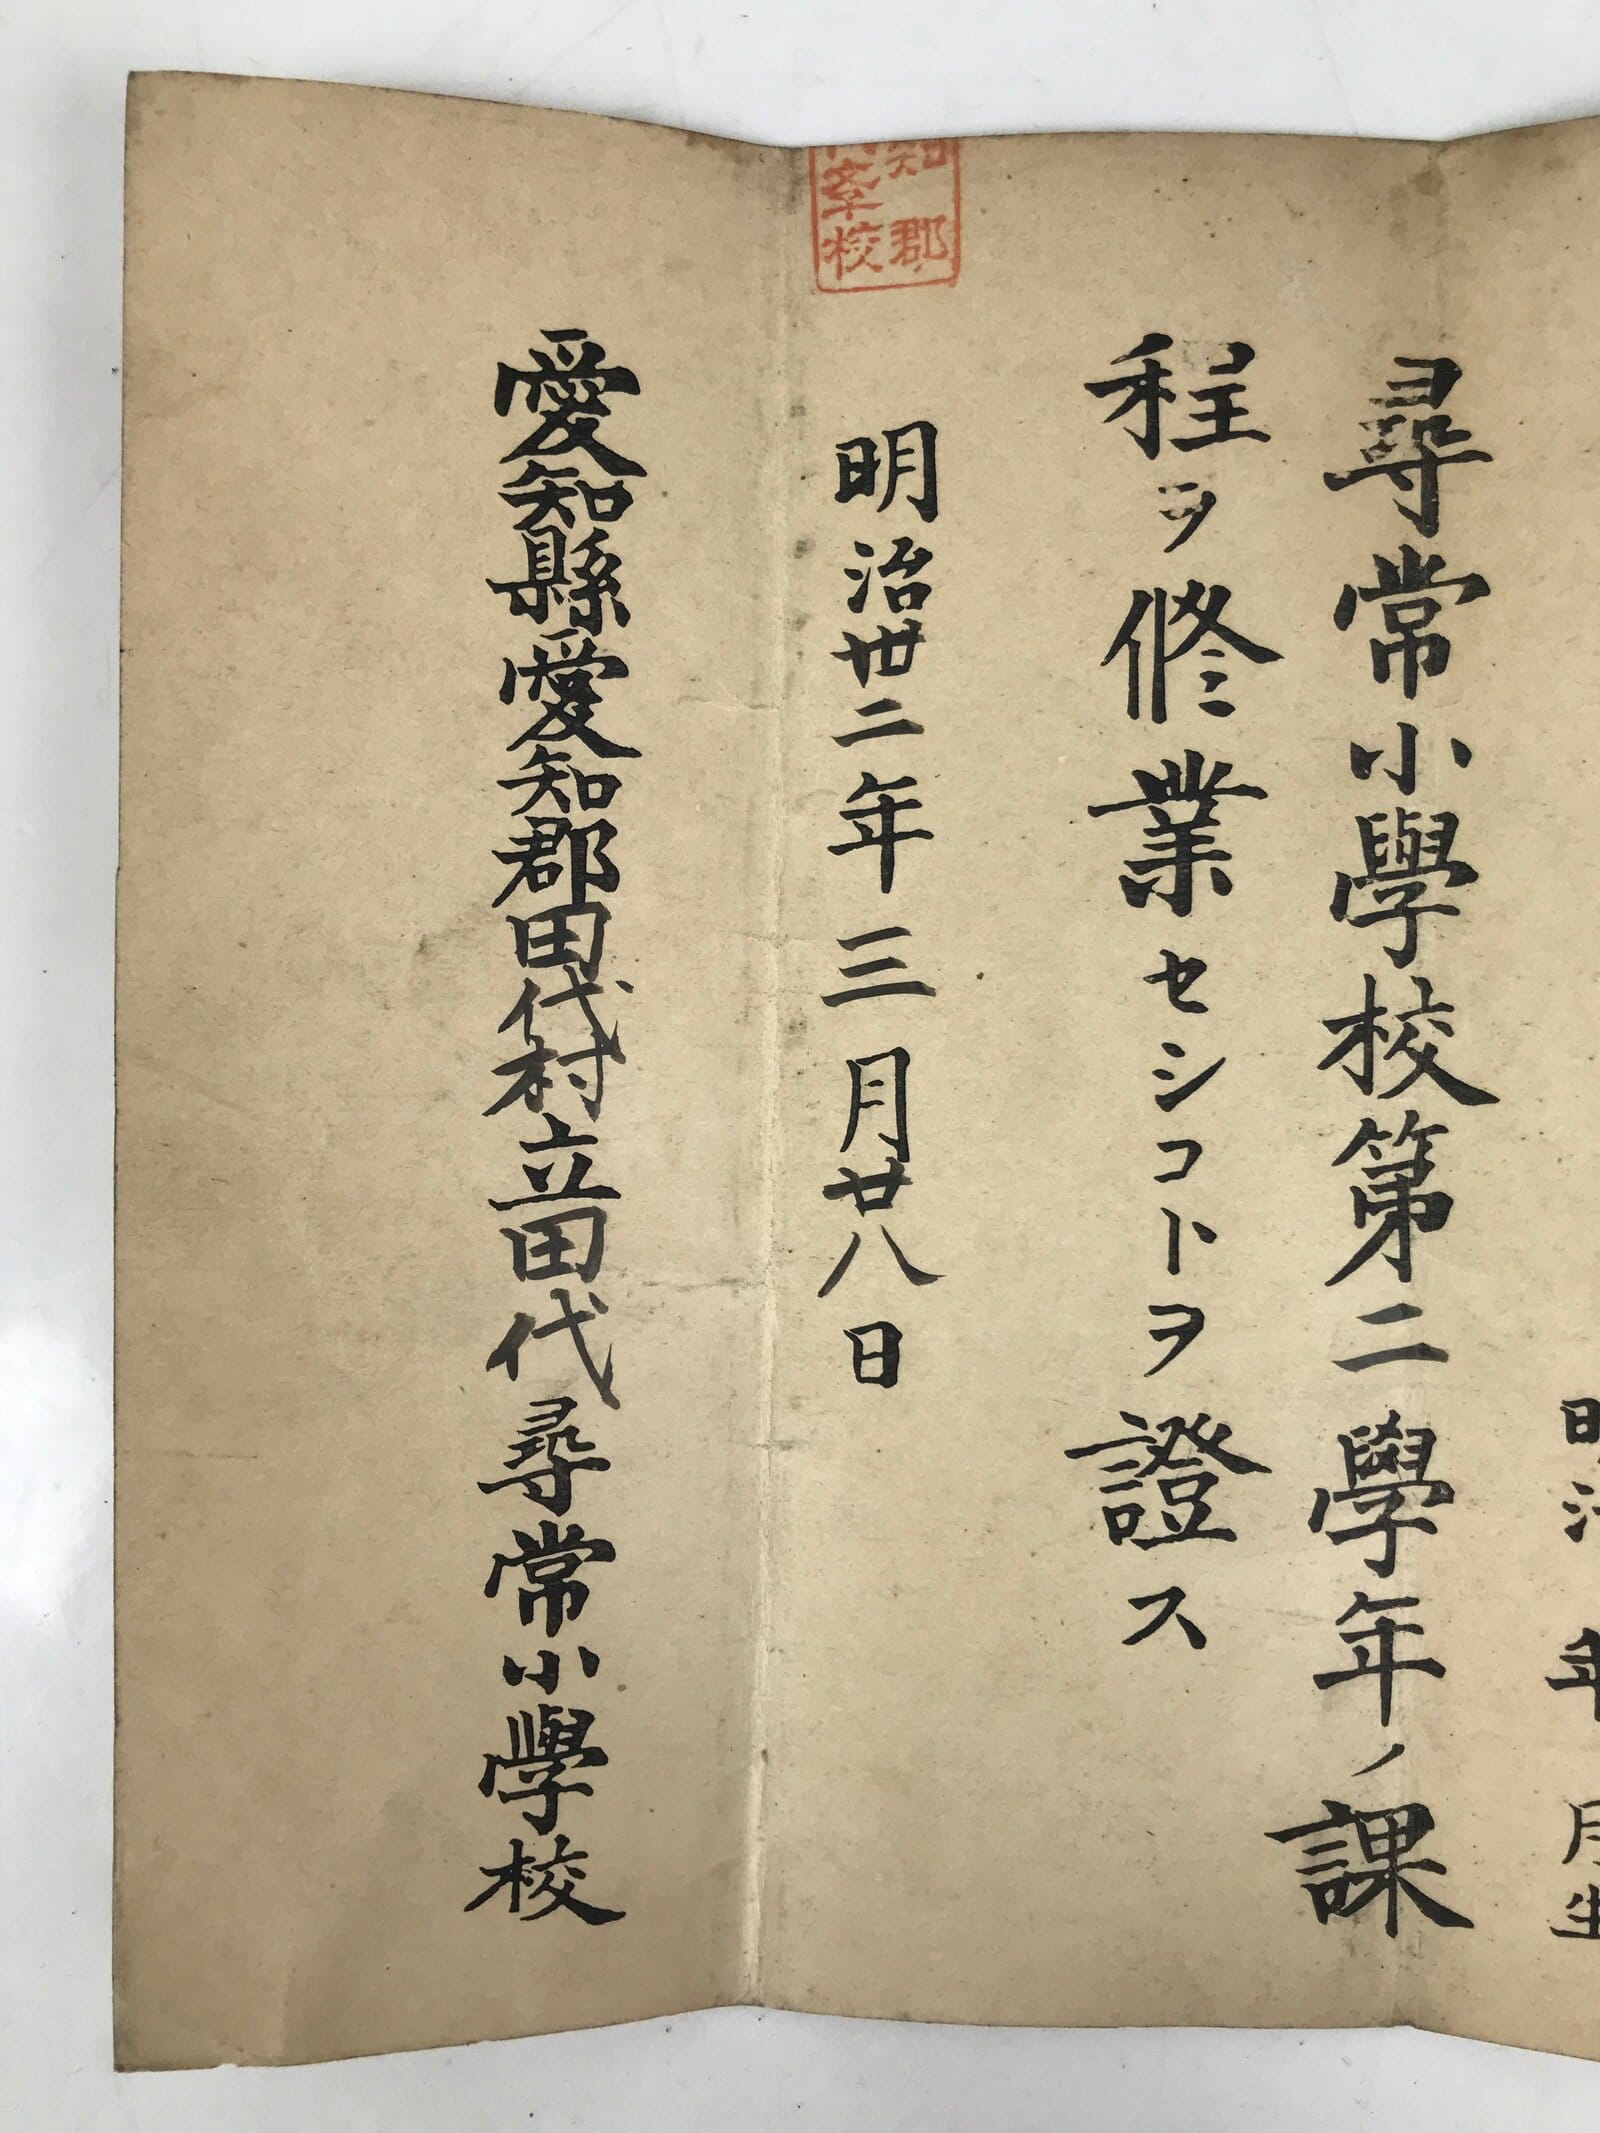 明治 年 月生
尋常小學校第二學年ノ課
程ヲ修業セシコトヲ證ス
明治丗二年三月廿八日
愛知縣愛知郡田代村立田代尋常小學校
知郡
校